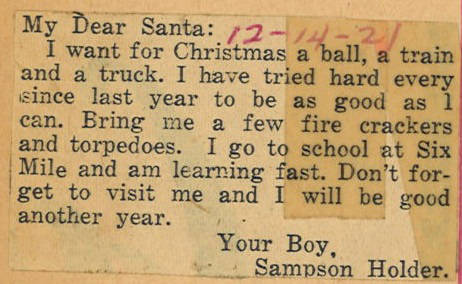 My Dear Santa: 12-14-21
I want for Christmas a ball, a train
and a truck. I have tried hard every
since last year to be as good as I
can. Bring me a few fire crackers
and torpedoes. I go to school at Six
Mile and am learning fast. Don't for-
get to visit me and I will be good
another year.
Your Boy,
Sampson Holder.